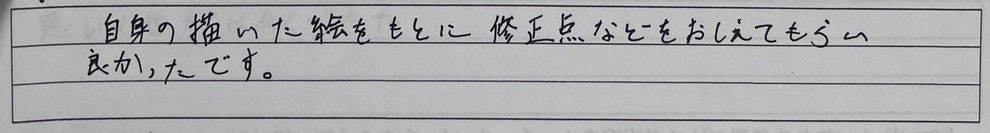 自身の描いた絵をもとに 修正点などをおしえてもらい
良かったです。